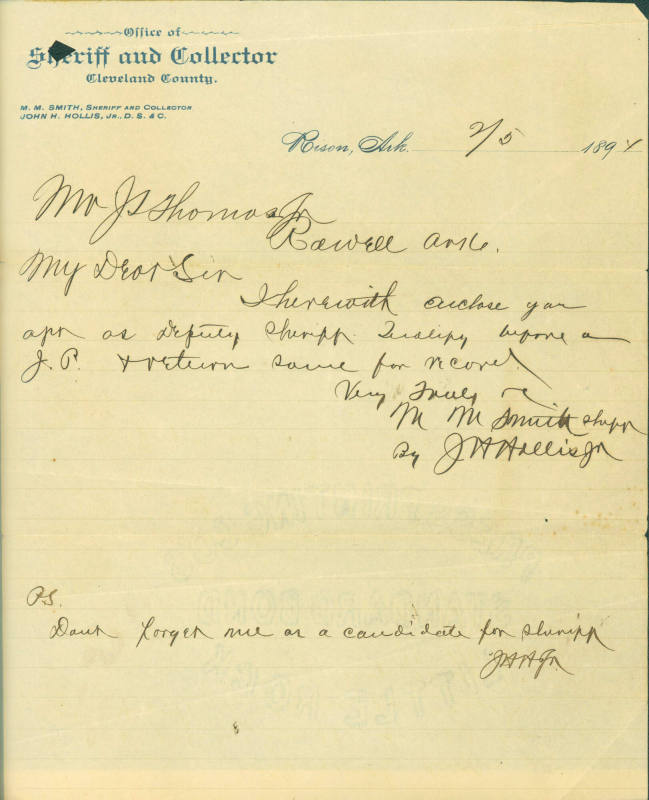 Office of
Sheriff and Collector
Cleveland County.
M. M. SMITH, SHERIFF AND COLLECTOR
JOHN H. HOLLIS, JR., D. S. & C.
Rison, Ark. 2/5 1894
Mr J S Thomas Jr
Rowell Ark.
My Dear Sir
I herewith enclose you
apt as deputy sheriff. Qualify before a
J. P. & return same for record
Very Truly
M M Smith Shff
By J H Hollis Jr
PS.
Dont forget me as a candidate for sheriff
JHH Jr.